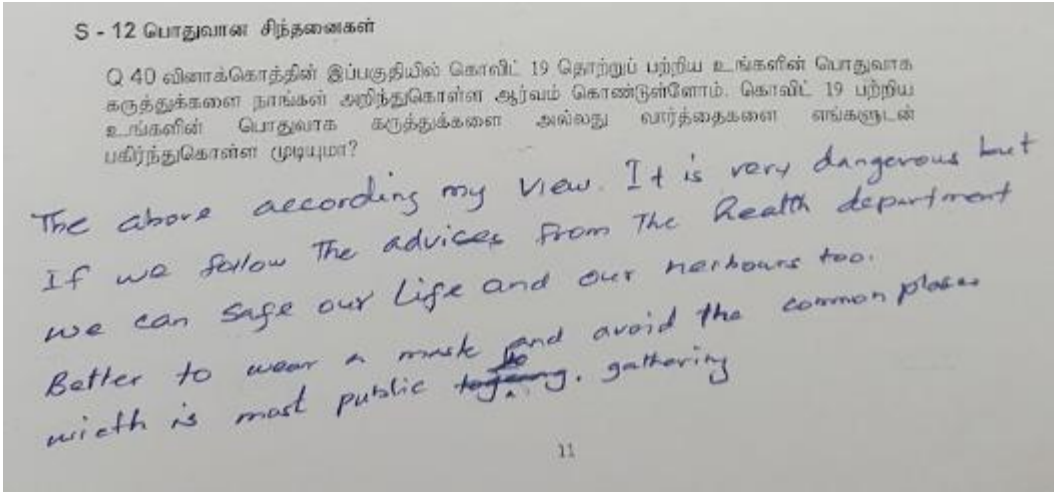 S - 12 பொதுவான சிந்தனைகள்
Q 40 வினாக்கொத்தின் இப்பகுதியில் கொவிட் 19 தொற்றுப் பற்றிய உங்களின் பொதுவாக
கருத்துக்களை நாங்கள் அறிந்துகொள்ள ஆர்வம் கொண்டுள்ளோம். கொவிட் 19 பற்றிய
உங்களின் பொதுவாக கருத்துக்களை அல்லது வார்த்தைகளை எங்களுடன்
பகிர்ந்துகொள்ள முடியுமா?
The above according my view. It is very dangerous but
If we follow The advices from The Health department
we can safe our life and our neihours too.
Better to wear a mask and avoid the common places
wicth is most public gathering
11